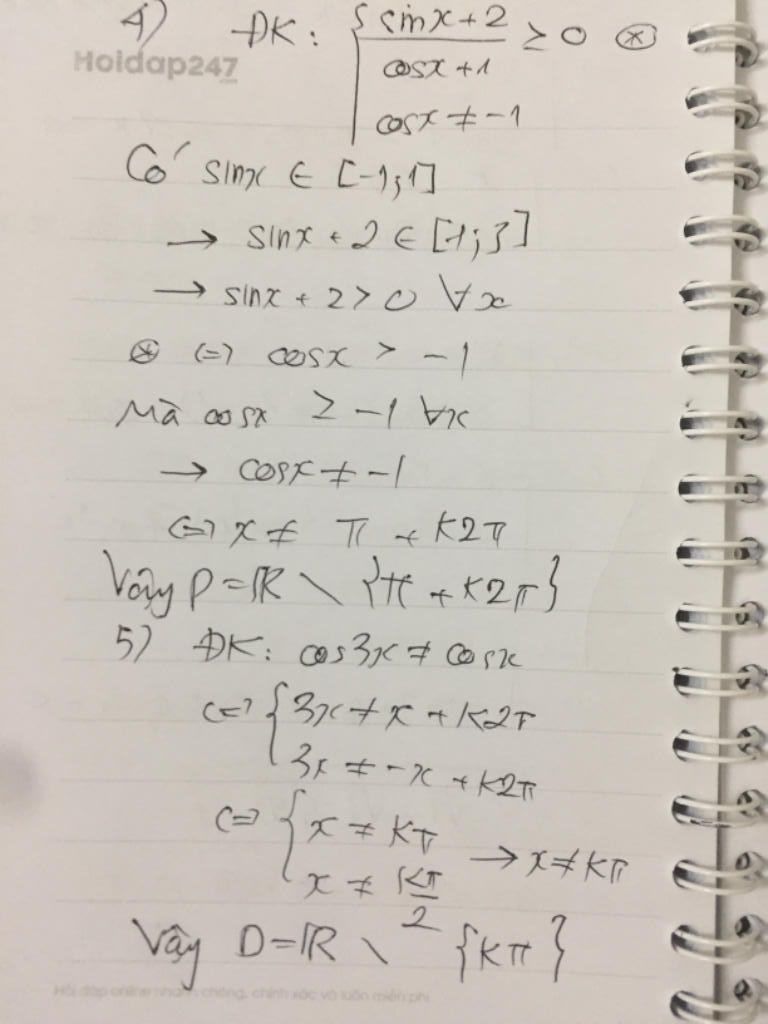 4) ĐK: { (sinx + 2)/(cosx + 1) ≥ 0 ⊛
Hoidap247
.com
cosx ≠ -1
Có sinx ∈ [-1;1]
→ sinx + 2 ∈ [1;3]
→ sinx + 2 > 0 ∀x
⊛ (=) cosx > -1
Mà cosx ≥ -1 ∀x
→ cosx ≠ -1
(=) x ≠ π + k2π
Vậy D = ℝ \ {π + k2π}
5) ĐK: cos3x ≠ cosx
(=) { 3x ≠ x + k2π
3x ≠ -x + k2π
(=) { x ≠ kπ
x ≠ kπ/2 → x ≠ kπ
Vậy D = ℝ \ {kπ}
Hỏi đáp online nhanh chóng, chính xác và luôn miễn phí